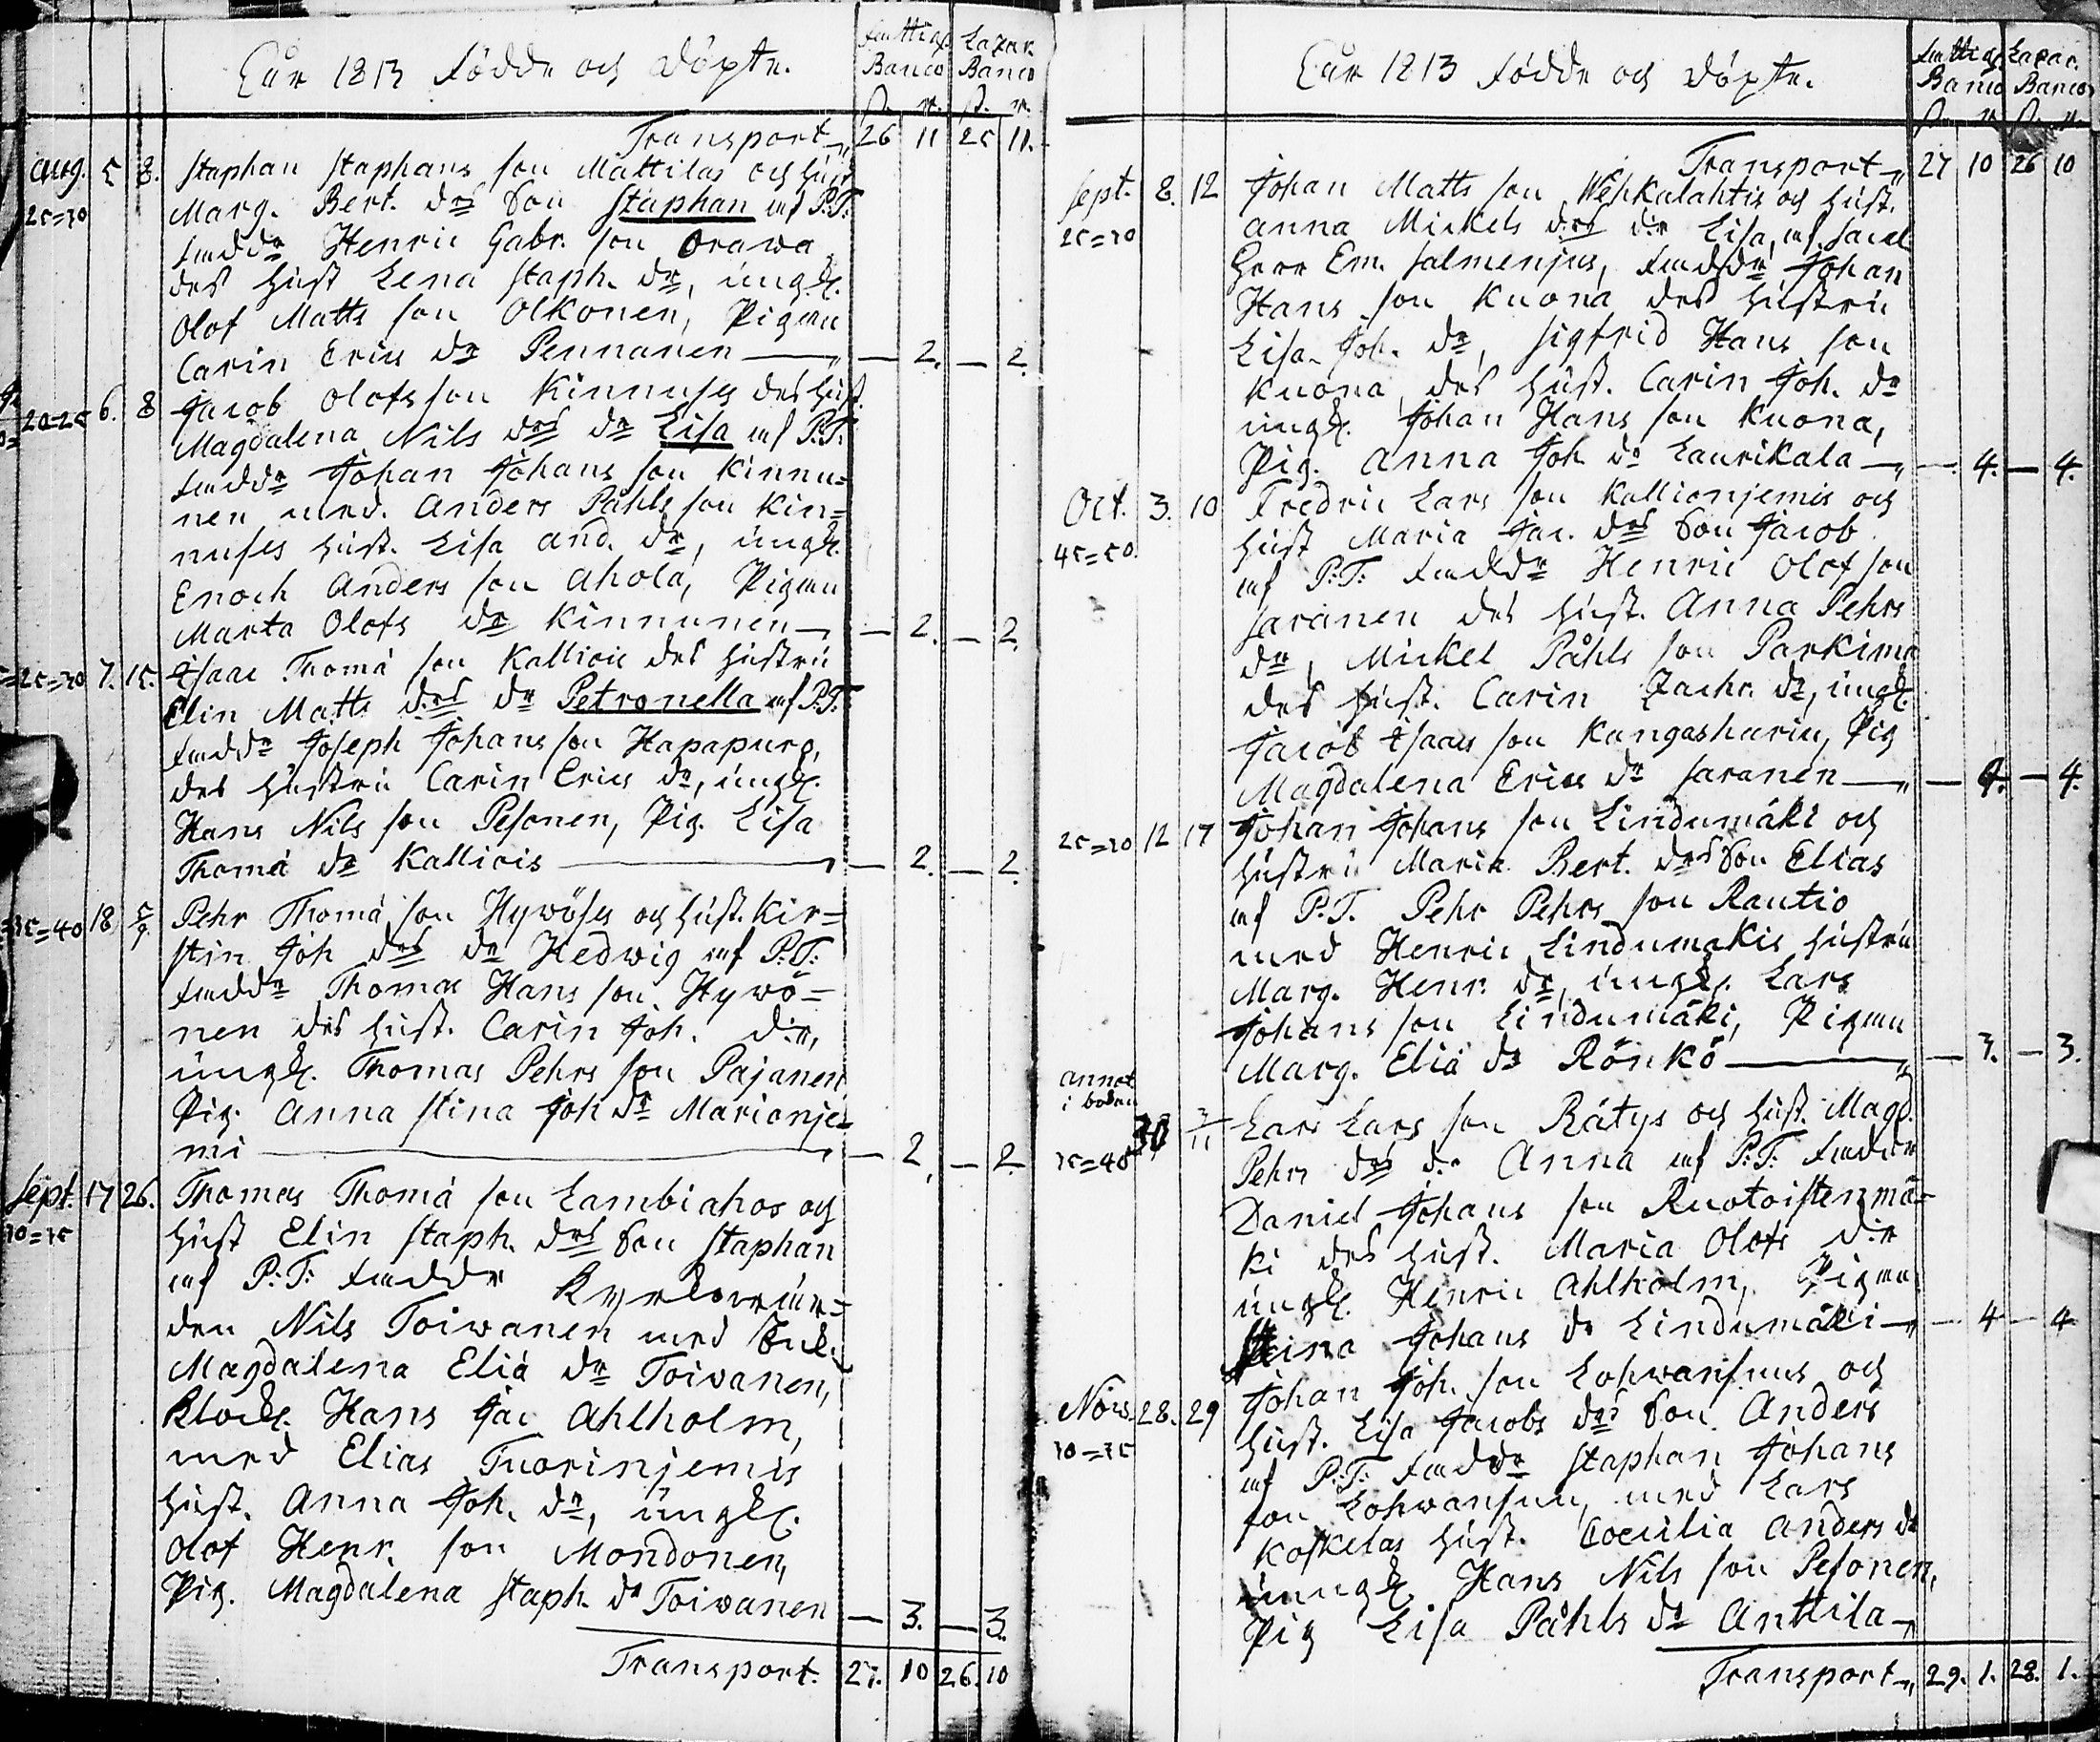 Åår 1813 Födde och Döpte.
Fattigs Banco ß. r. Lazar. Banco ß. r.
Transport 26 11 25 11.
Aug. 5 8. Staphan Staphans son Mattilas och hust
25=30 Marg. Bert. drs Son Staphan af P.T.
Faddr Henric Gabr. son Orawa
des hust Lena Staph. dr, ungk.
Olof Matts son Olkonen, Pigan
Carin Erics dr Pennanen — 2. — 2.
20=25 6. 8 Jacob Olofs son Kinnuses des hust.
Magdalena Nils drs dr Lisa af P.T.
Faddr Johan Johans son Kinnu=
nen med. Anders Påhls son Kin=
nuses hust. Lisa And. dr, ungk.
Enoch Anders son Ahola, Pigan
Marta Olofs dr Kinnunen — 2. — 2.
25=30 7. 15. Isaac Thomä son Kallioic des hustru
Elin Matts drs dr Petronella af P.T.
Faddr Joseph Johans son Hapapuro,
des hustru Carin Erics dr, ungk.
Hans Nils son Pesonen, Pig. Lisa
Thomä dr Kalliois — 2. — 2.
35=40 18 5/9 Pehr Thomä son Hywöses och hust. Kir=
stin Joh drs dr Hedwig af P.T:
Faddr Thomas Hans son Hywö=
nen des hust. Carin Joh. dr,
ungk. Thomas Pehrs son Pajanen
Pig. Anna Stina Joh dr Marionje=
mi — 2. — 2.
Sept. 17 26. Thomas Thomä son Lambiahos och
30=35 hust Elin Staph. drs Son Staphan
af P:T: Faddr Kyrkowär=
den Nils Toiwanen med Enk.
Magdalena Eliä dr Toiwanen,
Klock. Hans Jac Ahlholm,
med Elias Tuorinjemis
hust. Anna Joh. dr, ungk.
Olof Henr. son Mondonen,
Pig. Magdalena Staph. dr Toiwanen — 3. — 3.
Transport. 27. 10 26. 10
Åår 1813 Födde och Döpte.
Fattigs Banco ß. r. Lazar. Banco ß. r.
Transport 27 10 26 10
Sept. 8. 12 Johan Matts son Wehkalahtis och hust.
25=30 Anna Mickels drs dr Lisa, af Sacel
Herr Em. Salmenius, Faddr Johan
Hans son Kuona des hustru
Lisa Joh. dr, Sigfrid Hans son
Kuona des hust. Carin Joh. dr
ungk. Johan Hans son Kuona,
Pig. Anna Joh dr Laurikala — 4. — 4.
Oct. 3. 10 Fredric Lars son Kallionjemis och
45=50. hust Maria Jac. drs Son Jacob
af P:T: Faddr Henric Olof son
Saranen des hust. Anna Pehrs
dr, Mickel Påhls son Parkima
des hust. Carin Zachr. dr, ungk.
Jacob Isaacs son Kangasharin, Pig
Magdalena Erics dr Saranen — 4. — 4.
25=30 12 17 Johan Johans son Lindumäki och
hustru Maria Bert. drs Son Elias
af P.T. Pehr Pehrs son Rautio
med Henric Lindumäkis hustru
Marg. Henr. dr, ungk. Lars
Johans son Lindumäki, Pigan
Marg. Eliä dr Rönkö — 3. — 3.
annot
30 3/11 Lars Lars son Rätys och hust. Magd.
35=40 Pehrs drs dr Anna af P.T. Faddr
Daniel Johans son Ruotoistenmä=
ki des hust. Maria Olofs dr
ungk. Henric Ahlholm, Pigan
Stina Johans dr Lindumäki — 4 — 4
Nov. 28. 29 Johan Joh. son Lohwansuus och
30=35 hust. Lisa Jacobs drs Son Anders
af P:T: Faddr Staphan Johans
son Lohwansuu, med Lars
Koskelas hust. Coecilia Anders dr
ungk. Hans Nils son Pesonen,
Pig Lisa Påhls dr Anttila
Transport 29. 1. 28. 1.